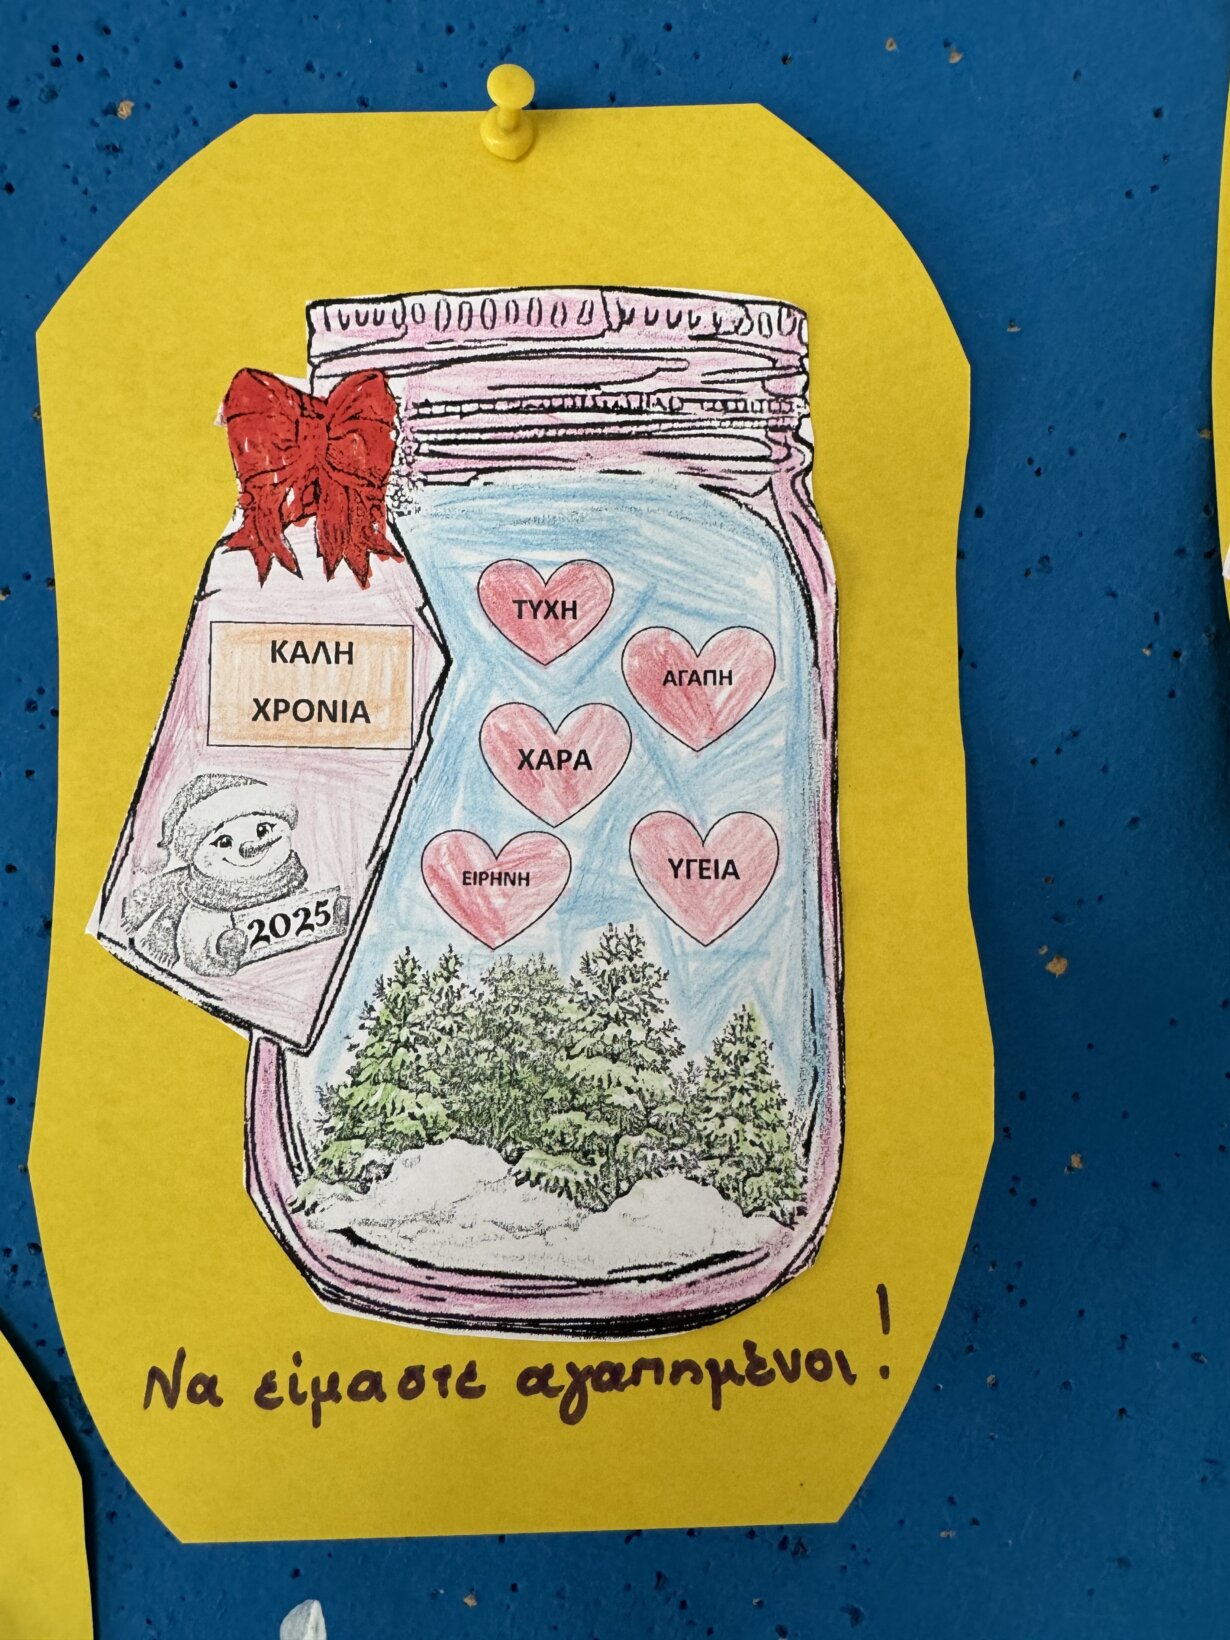 ΚΑΛΗ
ΧΡΟΝΙΑ
2025
ΤΥΧΗ
ΑΓΑΠΗ
ΧΑΡΑ
ΥΓΕΙΑ
ΕΙΡΗΝΗ
Να είμαστε αγαπημένοι!